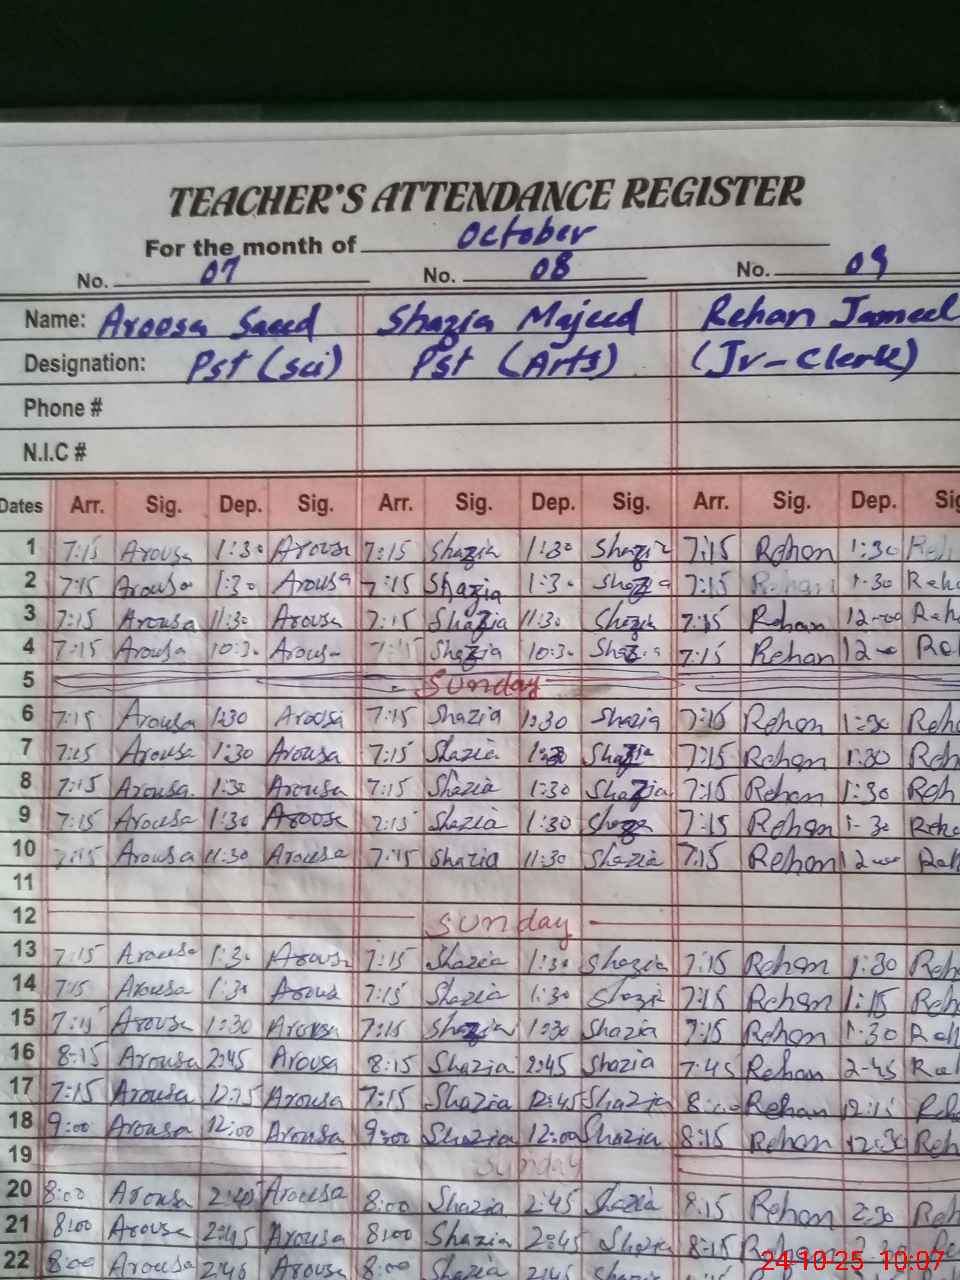 TEACHER'S ATTENDANCE REGISTER
For the month of October
No. 07 No. 08 No. 09
Name: Aroosa Saeed Shazia Majeed Rehan Jameel
Designation: Pst (sci) Pst (Arts) (Jr-Clerk)
Phone #
N.I.C #
Dates Arr. Sig. Dep. Sig. Arr. Sig. Dep. Sig. Arr. Sig. Dep. Sig
1 7:15 Arousa 1:30 Arousa 7:15 Shazia 1:30 Shazia 7:15 Rehan 1:30 Reh
2 7:15 Arousa 1:30 Arousa 7:15 Shazia 1:30 Shazia 7:15 Rehan 1-30 Reha
3 7:15 Arousa 11:30 Arousa 7:15 Shazia 11:30 Shazia 7:15 Rehan 12-00 Reh
4 7:15 Arousa 10:30 Arousa 7:15 Shazia 10:30 Shazia 7:15 Rehan Re
5 Sunday
6 7:15 Arousa 1:30 Aroosa 7:15 Shazia 1:30 Shazia 7:15 Rehan 1:30 Reha
7 7:15 Arousa 1:30 Arousa 7:15 Shazia 1:30 Shazia 7:15 Rehan 1:30 Reh
8 7:15 Arousa 1:30 Arousa 7:15 Shazia 1:30 Shazia 7:15 Rehan 1:30 Reh
9 7:15 Arousa 1:30 Aroosa 7:15 Shazia 1:30 7:15 Rehan 1-30 Reha
10 7:15 Arousa 11:30 Arousa 7:15 Shazia 11:30 Shazia 7:15 Rehan 12-00 Reh
11
12 Sunday
13 7:15 Arousa 1:30 Arousa 7:15 Shazia 1:30 Shazia 7:15 Rehan 1:30 Reh
14 7:15 Arousa 1:30 Arousa 7:15 Shazia 1:30 Shazia 7:15 Rehan 1:15 Reh
15 7:15 Arousa 1:30 Arousa 7:15 Shazia 1:30 Shazia 7:15 Rehan 1-30 Reh
16 8:15 Arousa 2:45 Arousa 8:15 Shazia 2:45 Shazia 7:45 Rehan 2-45 Reh
17 7:15 Arousa Arousa 7:15 Shazia 12:45 Shazia 8:00 Rehan 12:15 Reh
18 9:00 Arousa 12:00 Arousa 9:00 Shazia 12:00 Shazia 8:15 Rehan 12:30 Reh
19 Sunday
20 8:00 Arousa Arousa 8:00 Shazia 2:45 Shazia 8:15 Rehan 2:30 Reh
21 8:00 Arousa 2:45 Arousa 8:00 Shazia 2:45 Shazia 8:15 Rehan
22 8:00 Arousa 2:45 Arousa 8:00 Shazia 2:45 Shazia
24-10-25 10:07